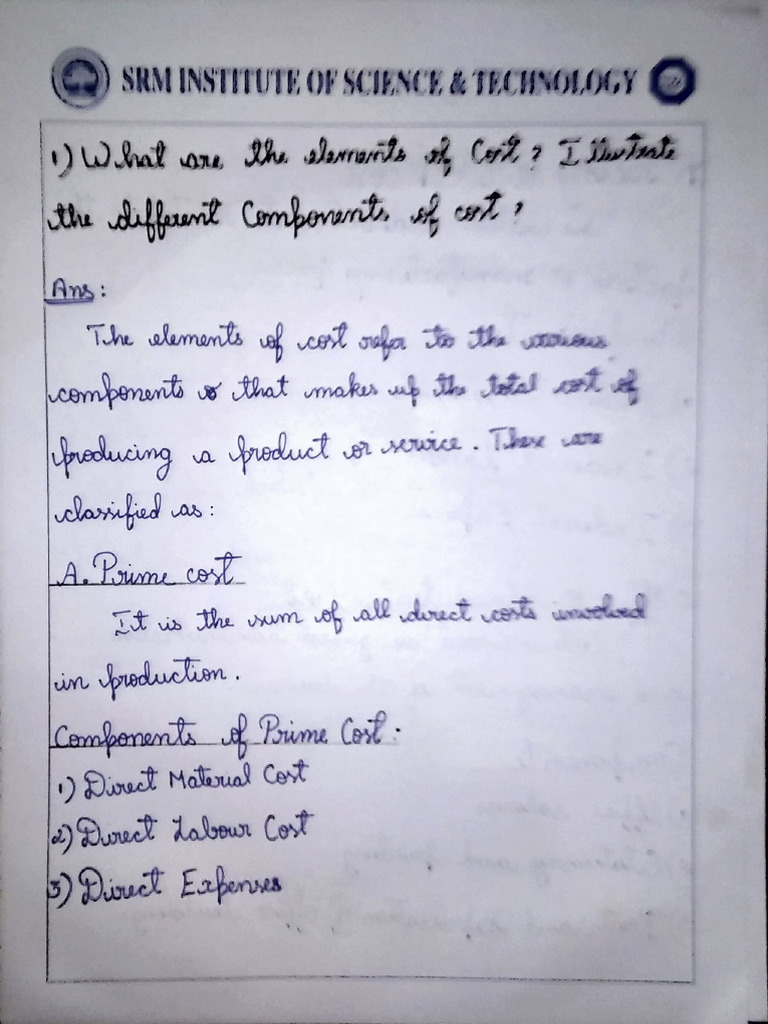 SRM INSTITUTE OF SCIENCE & TECHNOLOGY
1) What are the elements of Cost ? Illustrate
the different Components of cost ?
Ans :
The elements of cost refer to the various
components that makes up the total cost of
producing a product or service . These are
classified as :
A. Prime cost
It is the sum of all direct costs involved
in production .
Components of Prime Cost .
1) Direct Material Cost
2) Direct Labour Cost
3) Direct Expenses